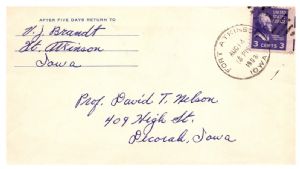 AFTER FIVE DAYS RETURN TO
H. J. Brandt
Ft. Atkinson
Iowa
FORT ATKINSON
AUG
IOWA
UNITED STATES POSTAGE
3 CENTS 3
Prof. David T. Nelson
409 High St.
Decorah, Iowa